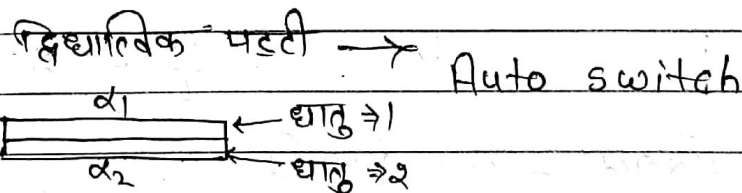 द्विधात्विक पट्टी → Auto switch
α1
← धातु ⇒1
α2 ← धातु ⇒२